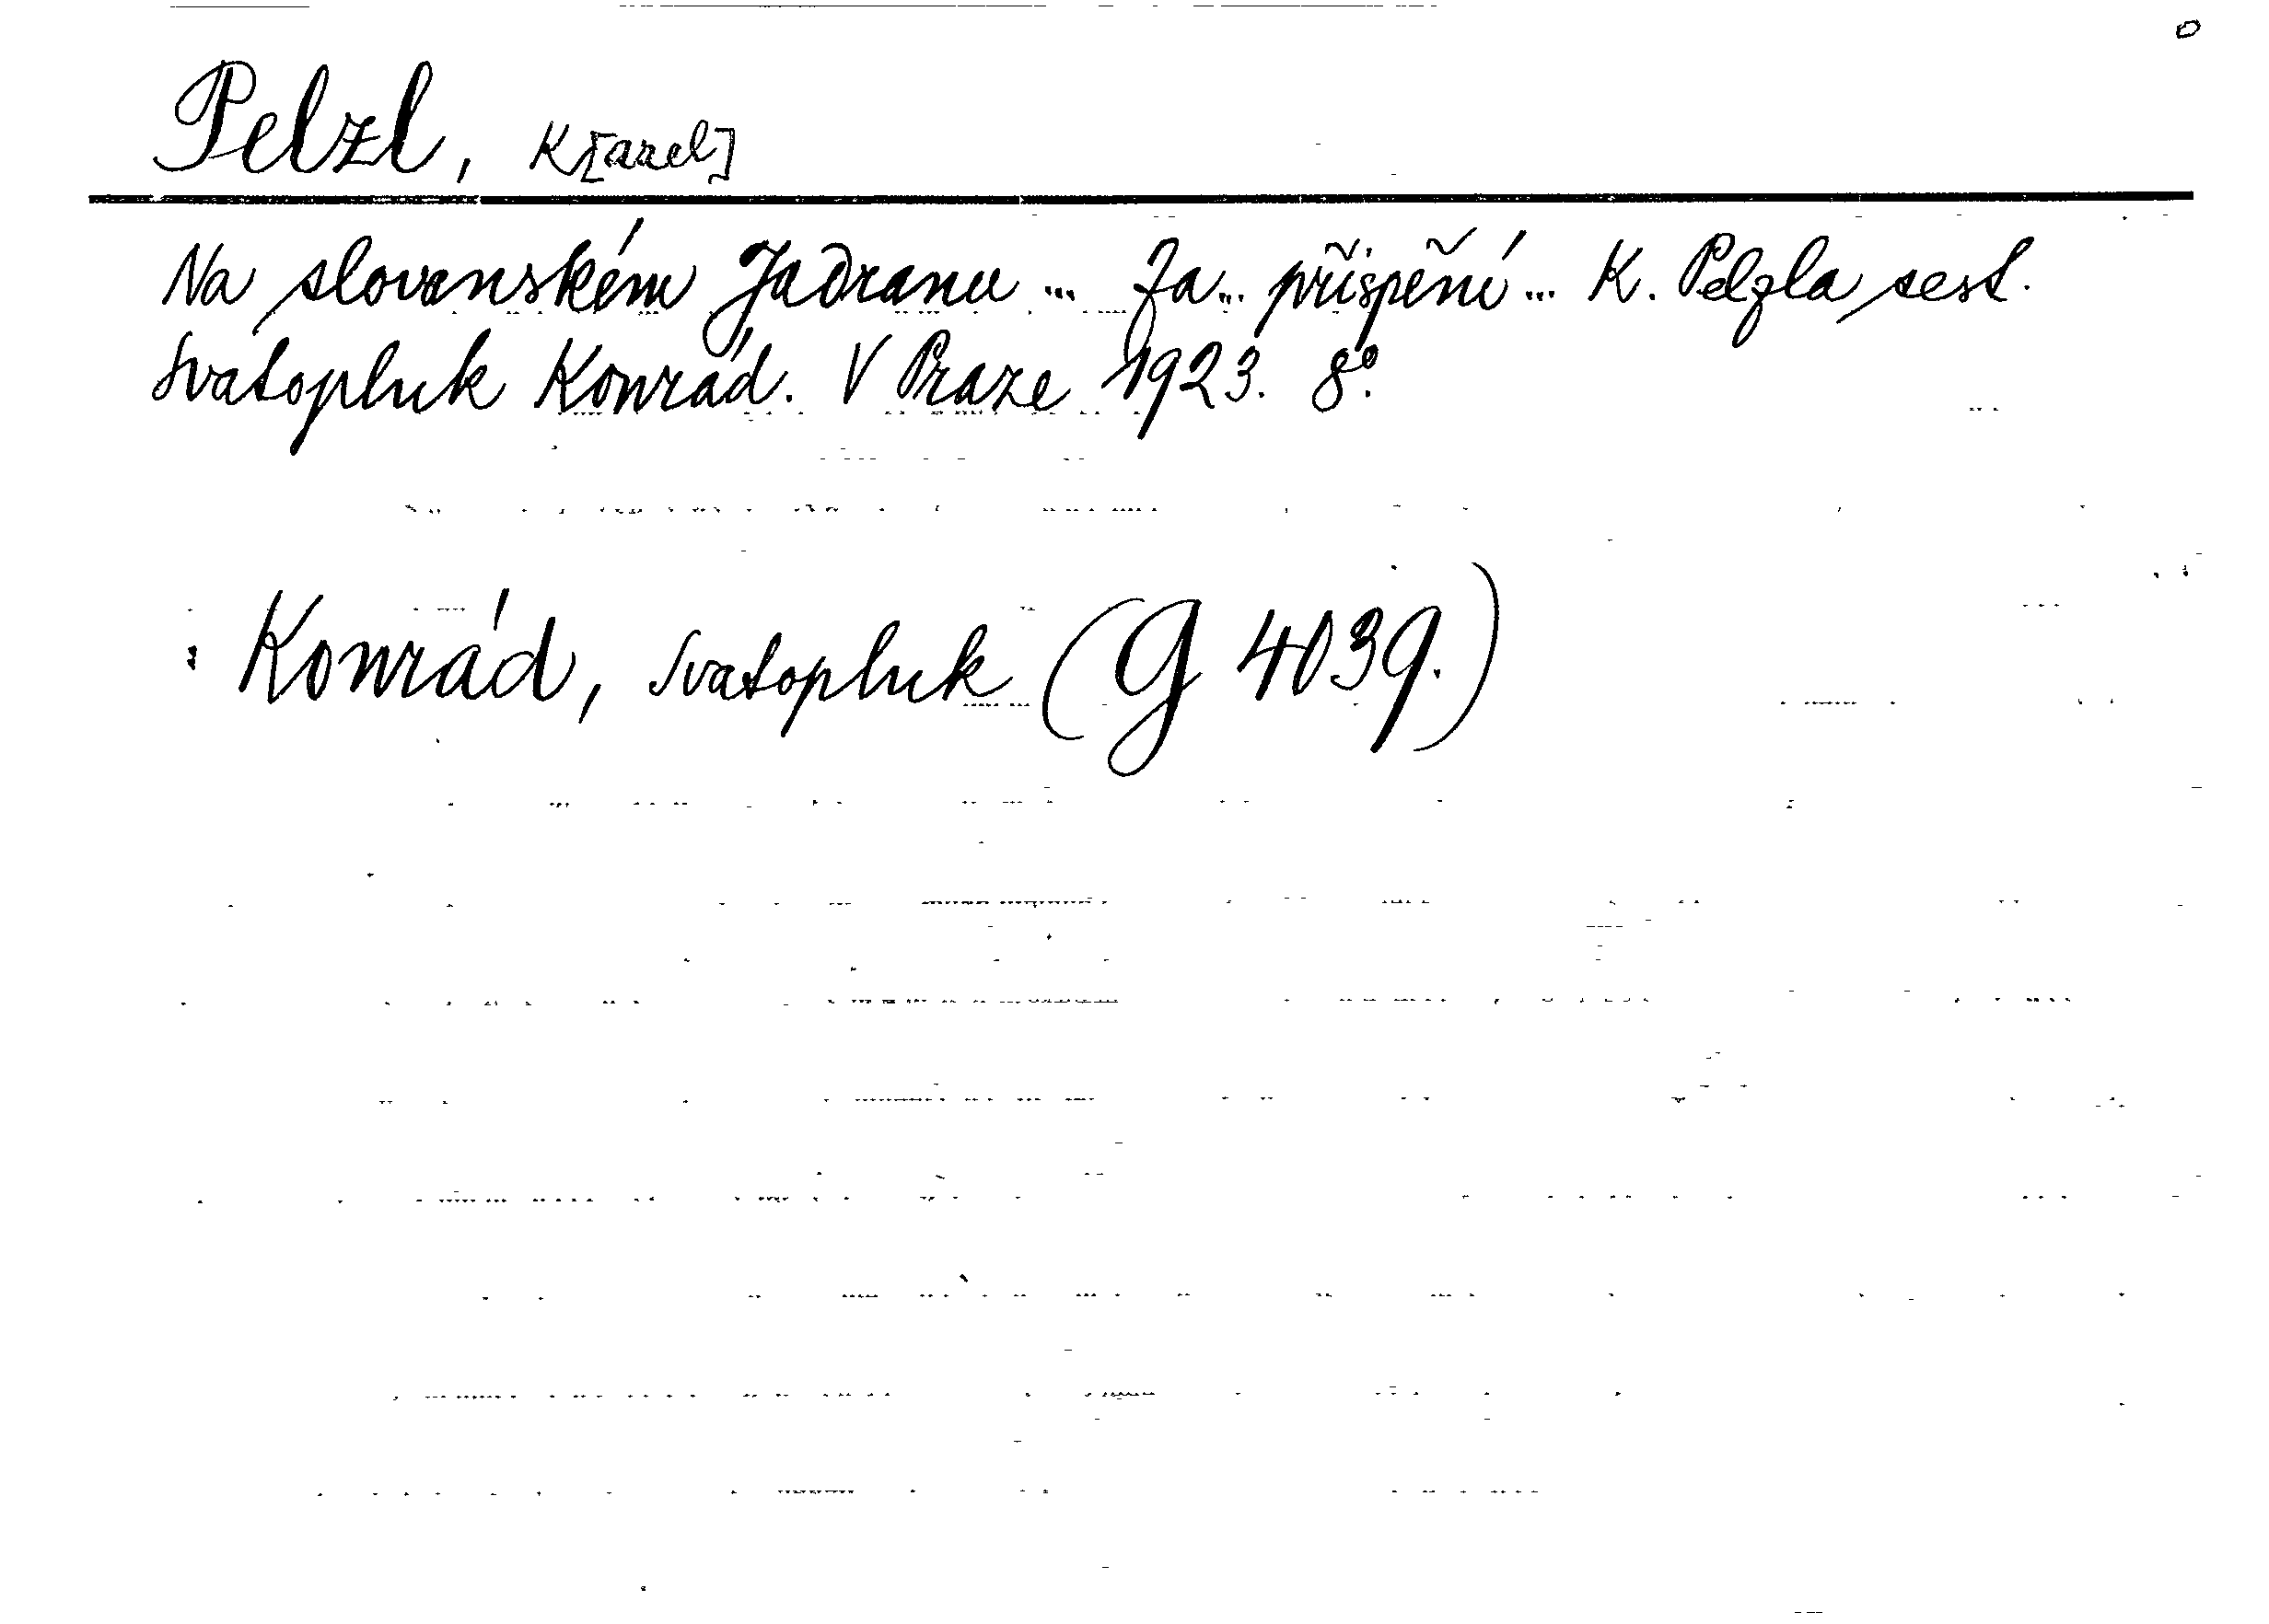 Pelzl, K[arel]
Na slovanském Jadranu ... Za ... přispění ... K. Pelzla sest.
Svatopluk Konrád. V Praze 1923. 8°.
: Konrád, Svatopluk (G 4039.)